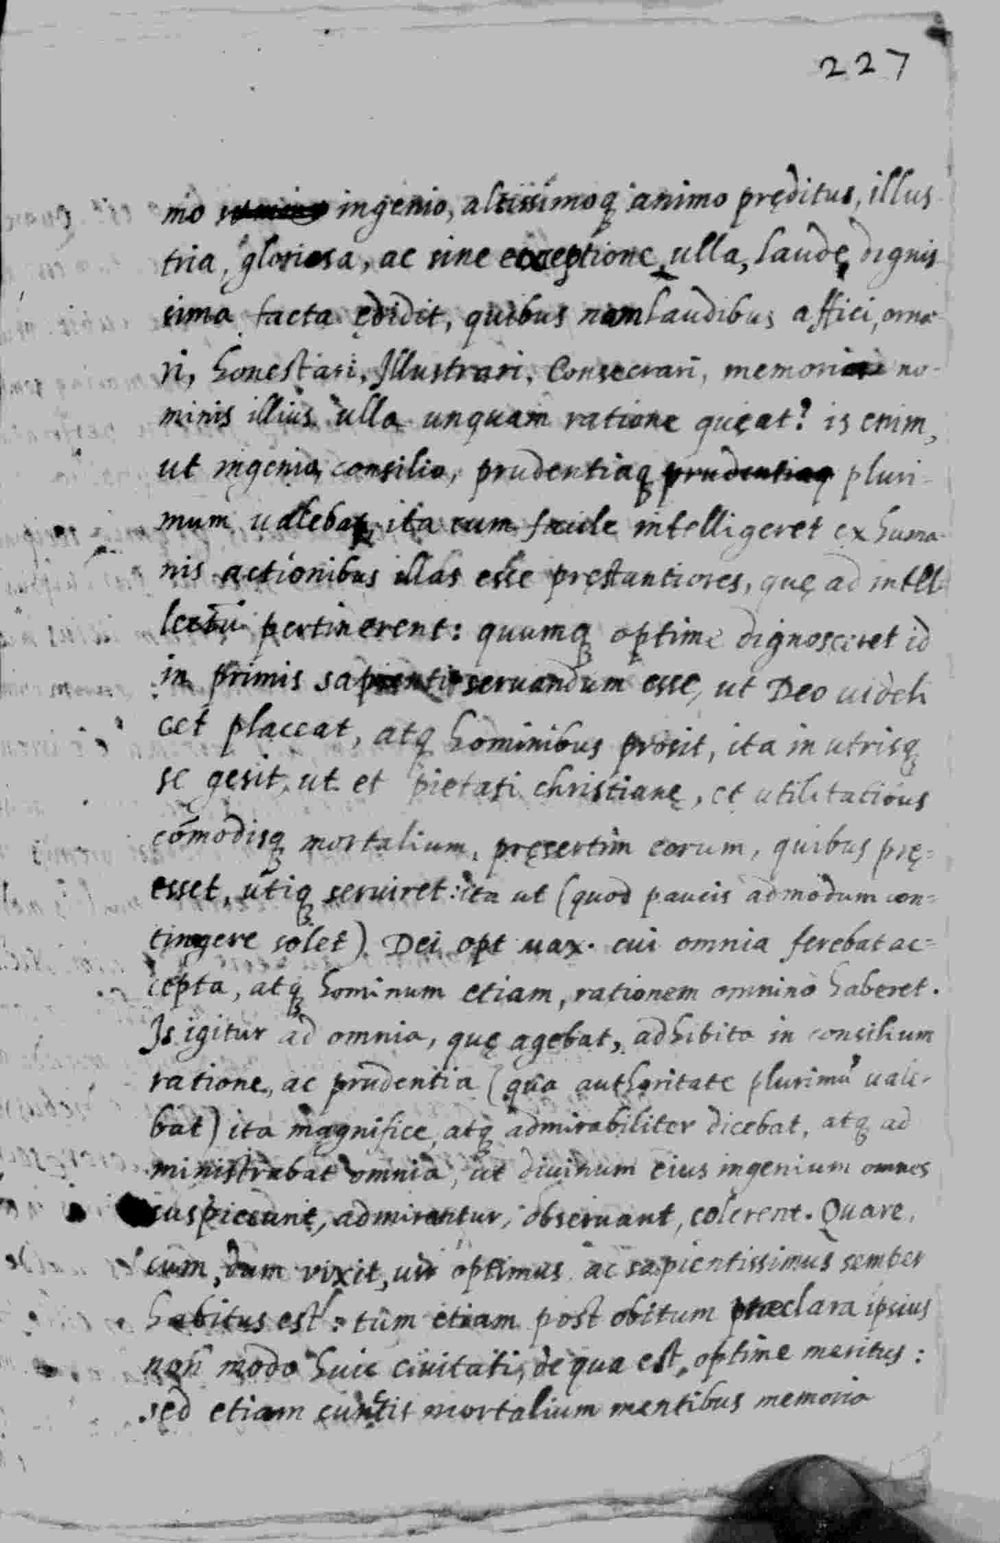 227
mo ingenio, altissimoq animo pręditus, illus
tria, gloriosa, ac sine exceptione ulla, laude dignis
sima facta ędidit, quibus nam laudibus affici, orna
ri, honestari, Illustrari, Consecrari, memoria no-
minis illius ulla unquam ratione queat? is enim,
ut ingenio, consilio, prudentiaq prudentiaq pluri-
mum ualebat, ita cum facile intelligeret ex huma-
nis actionibus illas esse pręstantiores, quę ad intel-
lectũ pertinerent: quumq optime dignosceret id
in primis sapienti seruandum esse, ut Deo uideli
cet placeat, atq hominibus prosit, ita in utrisq
se gesit, ut et pietati christianę, et utilitatibus
cõmodisq mortalium, pręsertim eorum, quibus prę-
esset, utiq seruiret: ita ut (quod paucis admodum con-
tingere solet) Dei opt max. cui omnia ferebat ac-
cepta, atq hominum etiam, rationem omnino haberet.
Is igitur ad omnia, quę agebat, adhibita in consilium
ratione, ac prudentia (qua authoritate plurimũ uale-
bat) ita magnifice, atq admirabiliter dicebat, atq ad
ministrabat omnia, ut diuinum eius ingenium omnes
suspicerent, admirentur, obseruant, colerent. Quare,
cum, dum vixit, uir optimus ac sapientissimus semper
habitus est: tũm etiam post obitum pręclara ipsius
non modo huic ciuitati, de qua est, optime meritus:
sed etiam cunctis mortalium mentibus memoria